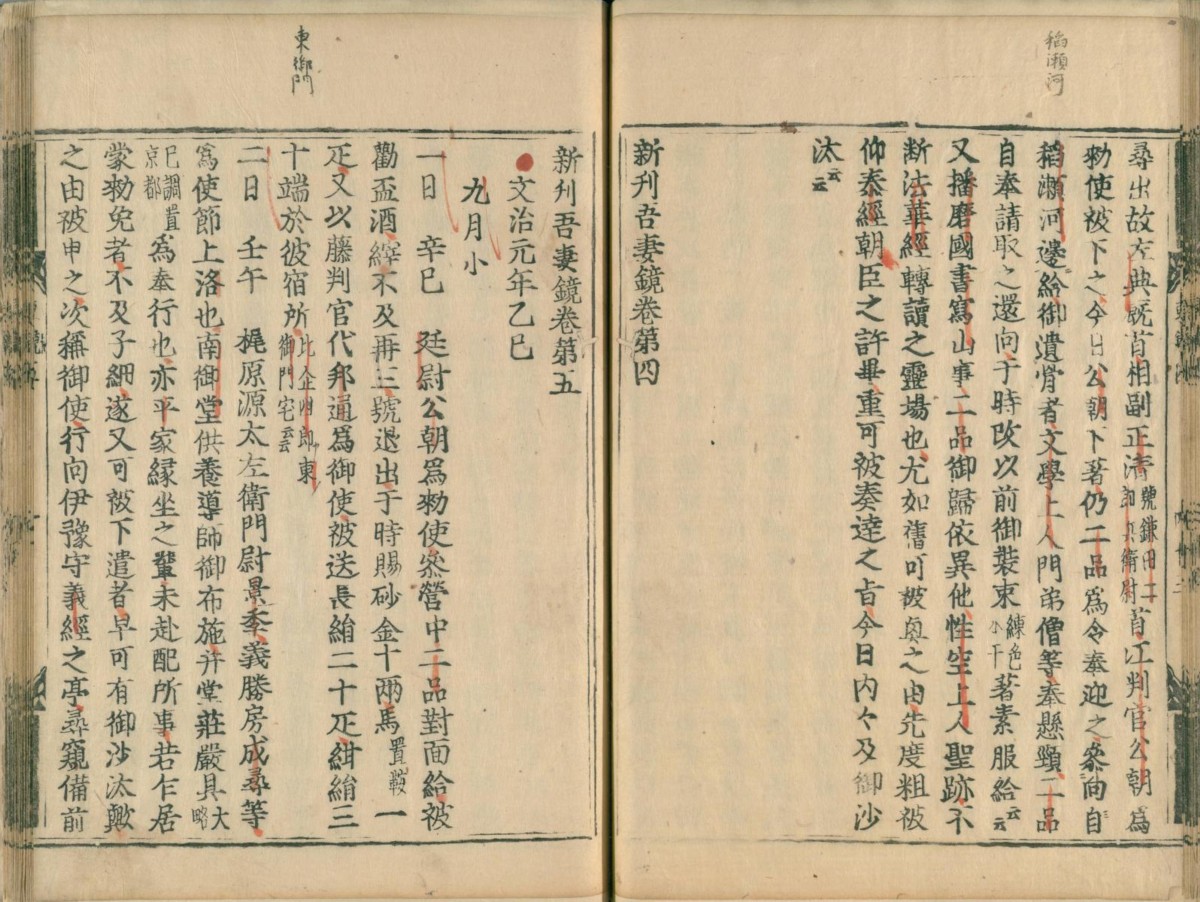 稲瀬河
尋出故左典厩首相副正清号鎌田二郎兵衛尉首江判官公朝為
勅使被下之今日公朝下著仍二品為令奉迎之参向自
稲瀬河邊給御遺骨者文學上人門弟僧等奉懸頸二品
自奉請取之還向于時改以前御装束練色水干著素服給云云
又播磨國書寫山事二品御歸依異他性空上人聖跡不
断法華經轉讀之靈場也尤如舊可被奥之由先度粗被
仰泰經朝臣之許畢重可被奏達之旨今日内々及御沙
汰云云
新刋吾妻鏡巻第四
東御門
新刋吾妻鏡巻第五
文治元年乙巳
九月小
一日 辛巳 廷尉公朝為勅使参營中二品對面給被
勸盃酒縡不及再三號退出于時賜砂金十兩馬置鞍一
疋又以藤判官代邦通為御使被送長絹二十疋紺絹三
十端於彼宿所比企四郎東御門宅云云
二日 壬午 梶原源太左衛門尉景季義勝房成尋等
為使節上洛也南御堂供養導師御布施并堂荘嚴具大略
已調置京都為奉行也亦平家縁坐之輩未赴配所事若乍居
蒙勅免者不及子細遂又可被下遣者早可有御沙汰歟
之由被申之次稱御使行向伊豫守義經之亭尋窺備前